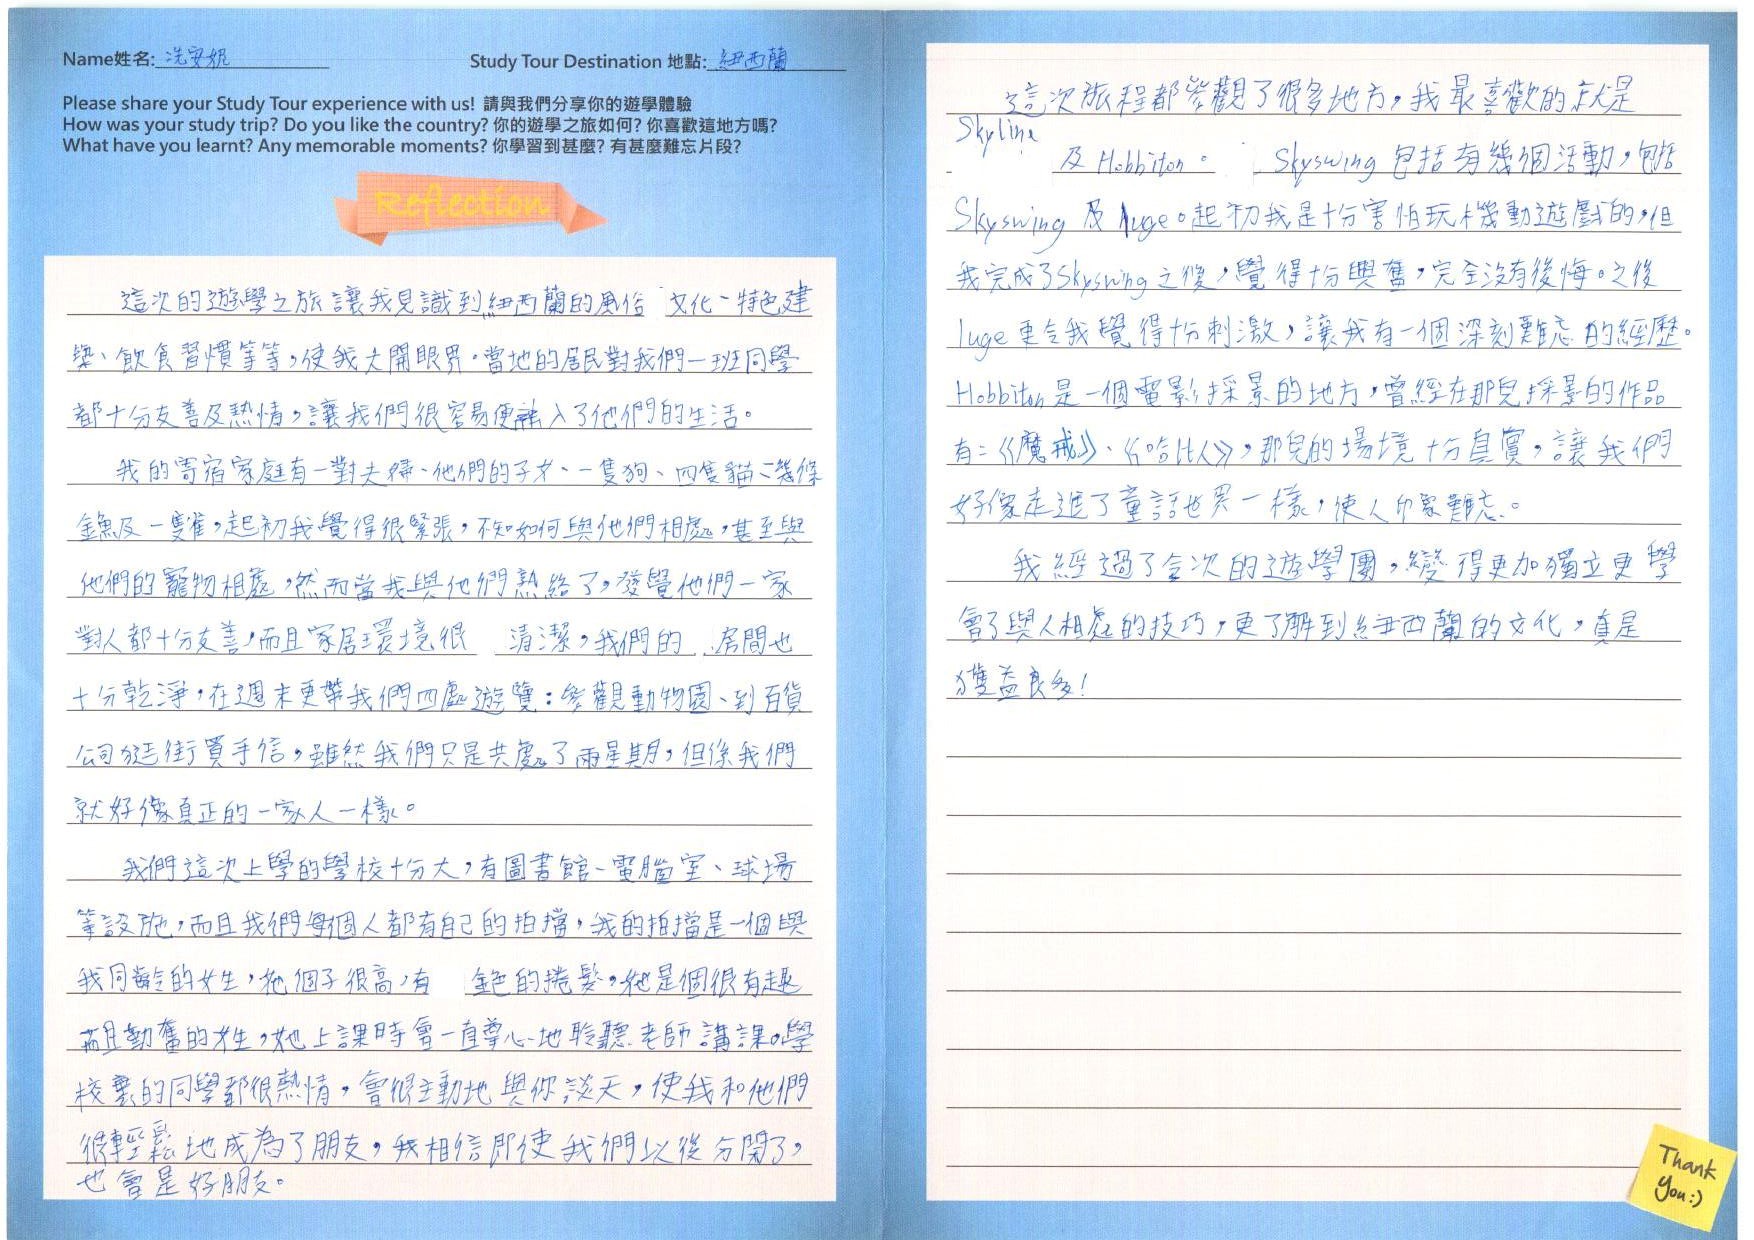 Name姓名: 冼安妮 Study Tour Destination 地點: 紐西蘭
Please share your Study Tour experience with us! 請與我們分享你的遊學體驗
How was your study trip? Do you like the country? 你的遊學之旅如何? 你喜歡這地方嗎?
What have you learnt? Any memorable moments? 你學習到甚麼? 有甚麼難忘片段?
Reflection
這次的遊學之旅讓我見識到紐西蘭的風俗 文化、特色建
築、飲食習慣等等,使我大開眼界。當地的居民對我們一班同學
都十分友善及熱情,讓我們很容易便融入了他們的生活。
我的寄宿家庭有一對夫婦、他們的子女、一隻狗、四隻貓、幾條
金魚及一隻雀,起初我覺得很緊張,不知如何與他們相處,甚至與
他們的寵物相處,然而當我與他們熟絡了,發覺他們一家
對人都十分友善,而且家居環境很 清潔,我們的 房間也
十分乾淨,在週末更帶我們四處遊覽:參觀動物園、到百貨
公司逛街買手信,雖然我們只是共處了兩星期,但係我們
就好像真正的一家人一樣。
我們這次上學的學校十分大,有圖書館、電腦室、球場
等設施,而且我們每個人都有自己的拍擋,我的拍擋是一個與
我同齡的女生,她個子很高,有 金色的捲髮,她是個很有趣
而且勤奮的女生,她上課時會一直專心地聆聽老師講課。學
校裏的同學都很熱情,會很主動地與你談天,使我和他們
很輕鬆地成為了朋友,我相信即使我們以後分開了,
也會是好朋友。
這次旅程都參觀了很多地方,我最喜歡的就是
Skyline
及Hobbiton。 Skyswing包括有幾個活動,包括
Skyswing及luge。起初我是十分害怕玩機動遊戲的,但
我完成了Skyswing之後,覺得十分興奮,完全沒有後悔。之後
luge更令我覺得十分刺激,讓我有一個深刻難忘的經歷。
Hobbiton是一個電影採景的地方,曾經在那兒採景的作品
有:《魔戒》、《哈比人》,那兒的場境十分真實,讓我們
好像走進了童話世界一樣,使人印象難忘。
我經過了今次的遊學團,變得更加獨立更學
會了與人相處的技巧,更了解到紐西蘭的文化,真是
獲益良多!
Thank
you:)